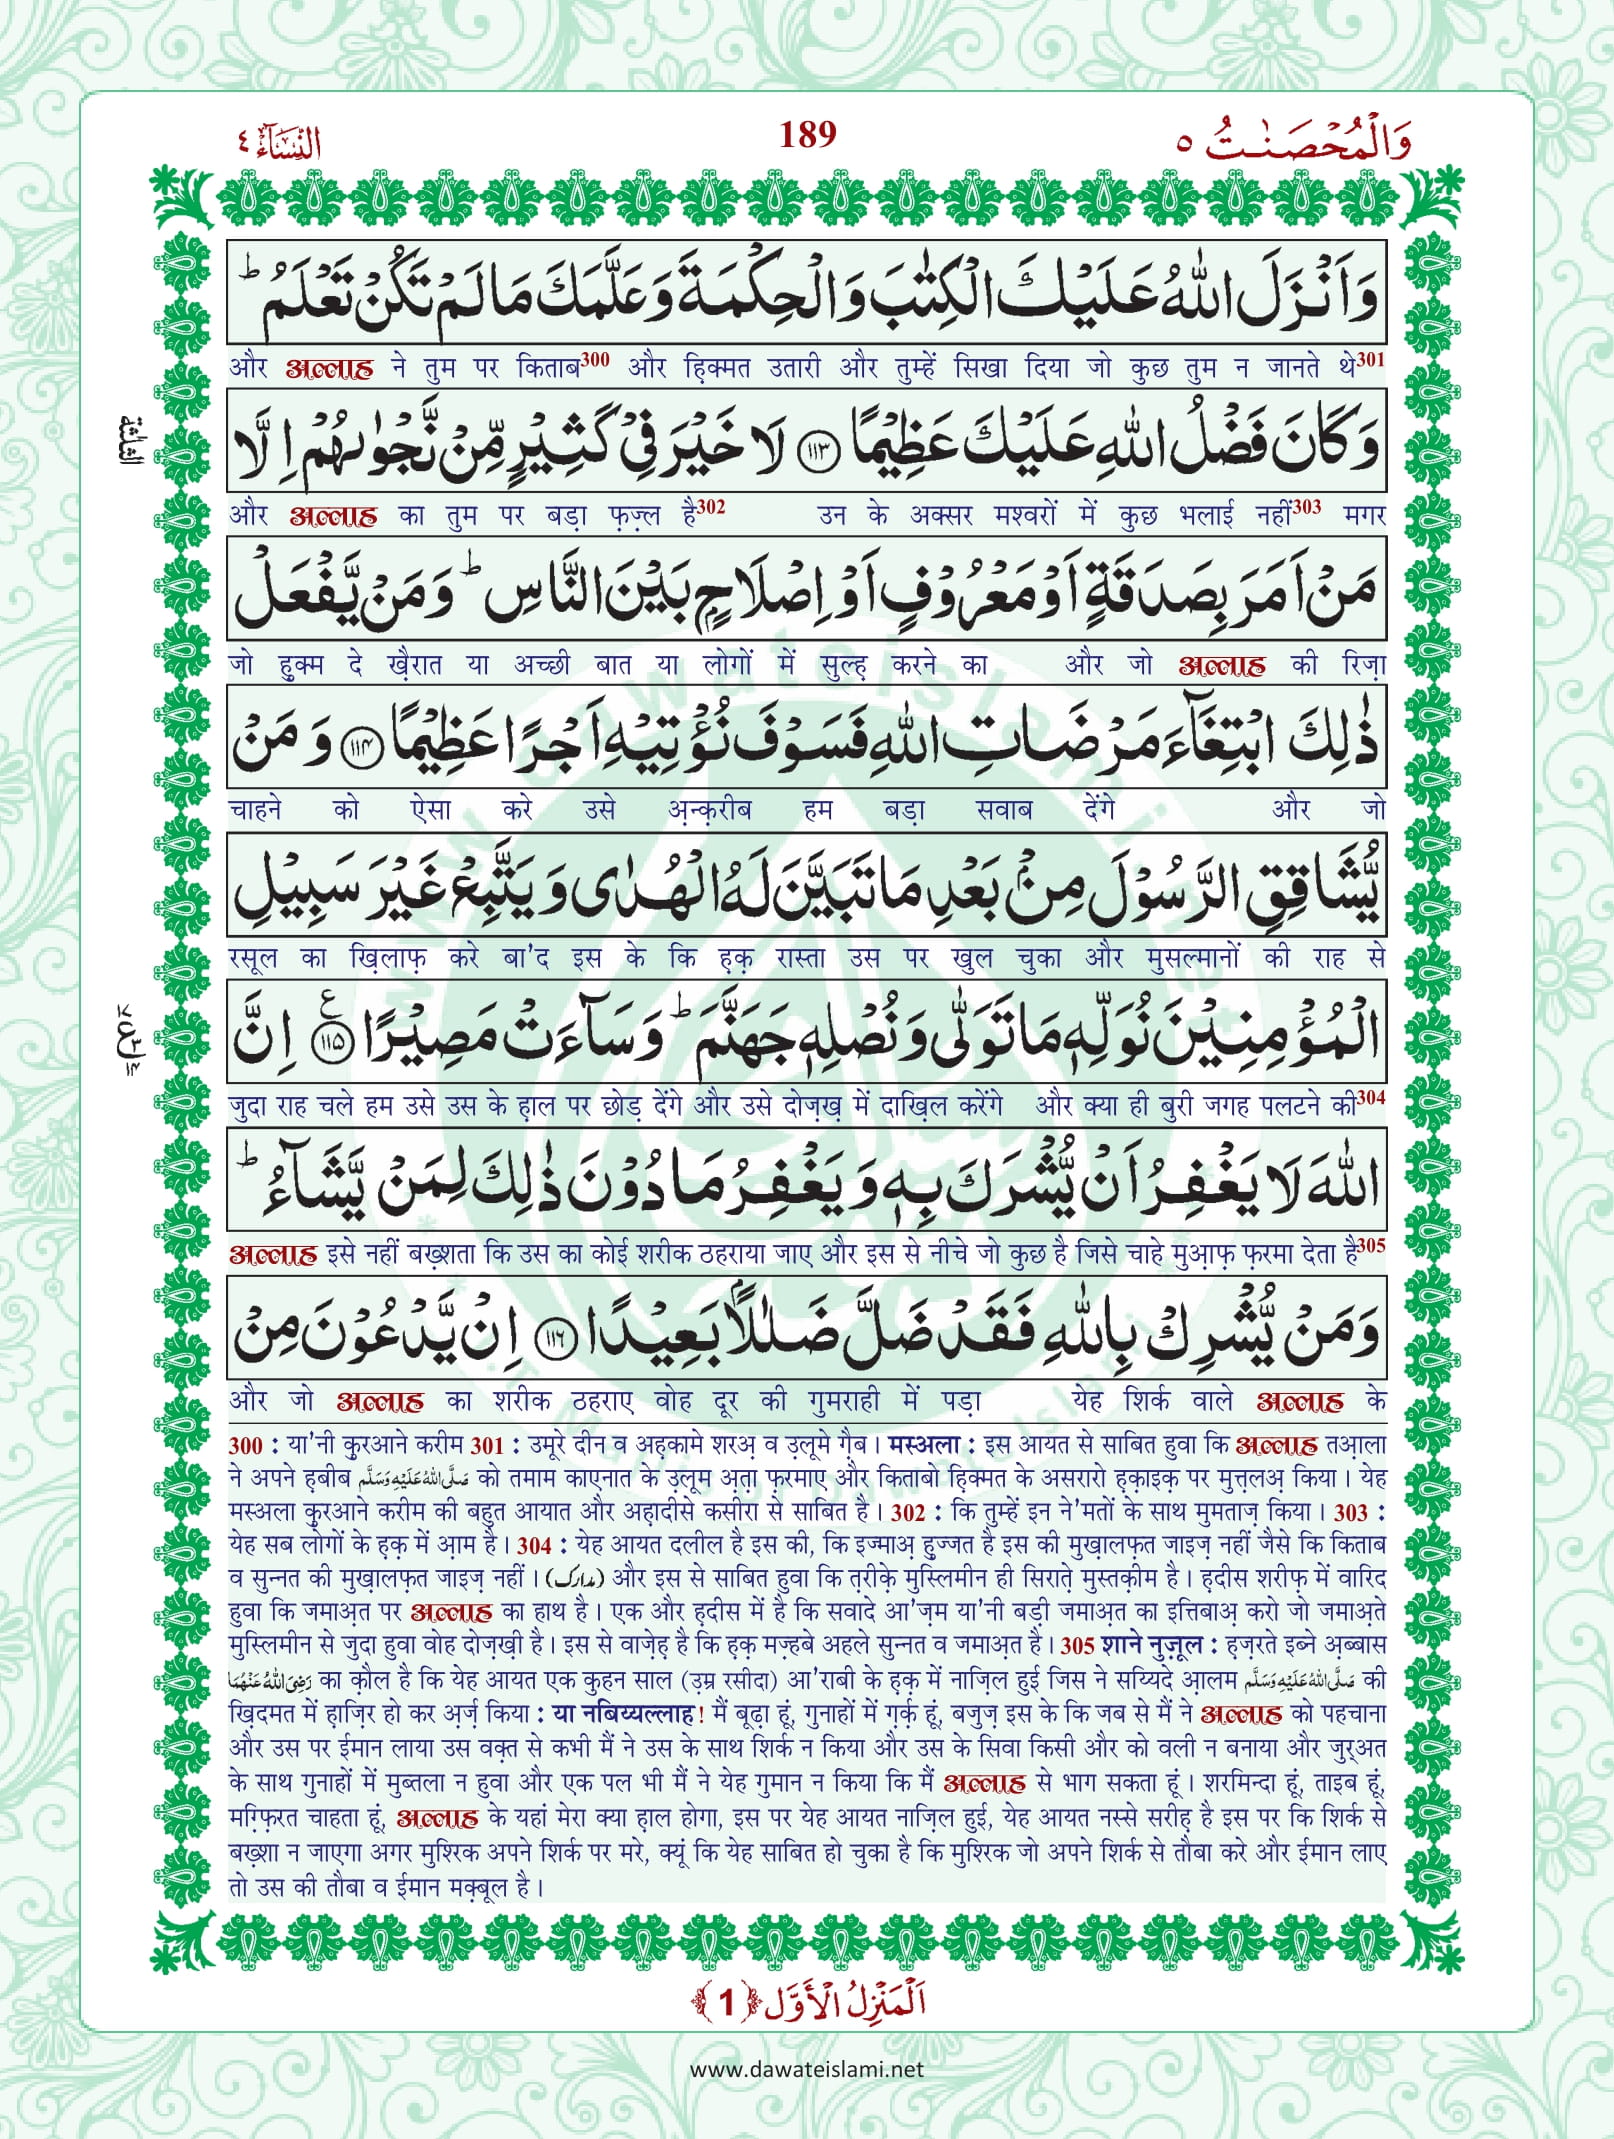 النِّسَآء ٤
189
وَالْمُحْصَنٰتُ ٥
وَاَنْزَلَ اللّٰهُ عَلَيْكَ الْكِتٰبَ وَالْحِكْمَةَ وَعَلَّمَكَ مَا لَمْ تَكُنْ تَعْلَمُ ؕ
और अल्लाह ने तुम पर किताब300 और हि़क्मत उतारी और तुम्हें सिखा दिया जो कुछ तुम न जानते थे301
وَكَانَ فَضْلُ اللّٰهِ عَلَيْكَ عَظِيْمًا ﴿۱۱۳﴾ لَا خَيْرَ فِيْ كَثِيْرٍ مِّنْ نَّجْوٰىهُمْ اِلَّا
الثلثة
और अल्लाह का तुम पर बड़ा फ़ज़्ल है302 उन के अक्सर मश्वरों में कुछ भलाई नहीं303 मगर
مَنْ اَمَرَ بِصَدَقَةٍ اَوْ مَعْرُوْفٍ اَوْ اِصْلَاحٍۭ بَيْنَ النَّاسِ ؕ وَمَنْ يَّفْعَلْ
जो हुक्म दे ख़ैरात या अच्छी बात या लोगों में सुल्ह़ करने का और जो अल्लाह की रिज़ा
ذٰلِكَ ابْتِغَآءَ مَرْضَاتِ اللّٰهِ فَسَوْفَ نُؤْتِيْهِ اَجْرًا عَظِيْمًا ﴿۱۱۴﴾ وَمَنْ
चाहने को ऐसा करे उसे अ़न्क़रीब हम बड़ा सवाब देंगे और जो
يُّشَاقِقِ الرَّسُوْلَ مِنْۢ بَعْدِ مَا تَبَيَّنَ لَهُ الْهُدٰى وَيَتَّبِعْ غَيْرَ سَبِيْلِ
रसूल का ख़िलाफ़ करे बा'द इस के कि ह़क़ रास्ता उस पर खुल चुका और मुसल्मानों की राह से
الْمُؤْمِنِيْنَ نُوَلِّهٖ مَا تَوَلّٰى وَنُصْلِهٖ جَهَنَّمَ ؕ وَسَآءَتْ مَصِيْرًا ﴿۱۱۵﴾ ع اِنَّ
जुदा राह चले हम उसे उस के ह़ाल पर छोड़ देंगे और उसे दोज़ख़ में दाख़िल करेंगे और क्या ही बुरी जगह पलटने की304
اللّٰهَ لَا يَغْفِرُ اَنْ يُّشْرَكَ بِهٖ وَيَغْفِرُ مَا دُوْنَ ذٰلِكَ لِمَنْ يَّشَآءُ ؕ
अल्लाह इसे नहीं बख़्शता कि उस का कोई शरीक ठहराया जाए और इस से नीचे जो कुछ है जिसे चाहे मुआ़फ़ फ़रमा देता है305
وَمَنْ يُّشْرِكْ بِاللّٰهِ فَقَدْ ضَلَّ ضَلٰلًۢا بَعِيْدًا ﴿۱۱۶﴾ اِنْ يَّدْعُوْنَ مِنْ
और जो अल्लाह का शरीक ठहराए वोह दूर की गुमराही में पड़ा येह शिर्क वाले अल्लाह के
300 : या'नी क़ुरआने करीम 301 : उमूरे दीन व अह़कामे शरअ़ व उ़लूमे ग़ैब। मस्अला : इस आयत से साबित हुवा कि अल्लाह तआ़ला
ने अपने ह़बीब صَلَّى اللّٰهُ عَلَيْهِ وَسَلَّم को तमाम काएनात के उ़लूम अ़त़ा फ़रमाए और किताबो हि़क्मत के असरारो ह़क़ाइक़ पर मुत़्त़लअ़ किया। येह
मस्अला क़ुरआने करीम की बहुत आयात और अह़ादीसे कसीरा से साबित है। 302 : कि तुम्हें इन ने'मतों के साथ मुमताज़ किया। 303 :
येह सब लोगों के ह़क़ में आ़म है। 304 : येह आयत दलील है इस की, कि इज्माअ़ हुज्जत है इस की मुख़ालफ़त जाइज़ नहीं जैसे कि किताब
व सुन्नत की मुख़ालफ़त जाइज़ नहीं। (مدارک) और इस से साबित हुवा कि त़रीक़े मुस्लिमीन ही सिरात़े मुस्तक़ीम है। ह़दीस शरीफ़ में वारिद
हुवा कि जमाअ़त पर अल्लाह का हाथ है। एक और ह़दीस में है कि सवादे आ'ज़म या'नी बड़ी जमाअ़त का इत्तिबाअ़ करो जो जमाअ़ते
मुस्लिमीन से जुदा हुवा वोह दोज़ख़ी है। इस से वाज़ेह़ है कि ह़क़ मज़्हबे अहले सुन्नत व जमाअ़त है। 305 शाने नुज़ूल : ह़ज़रते इब्ने अ़ब्बास
رَضِىَ اللّٰهُ عَنْهُمَا का क़ौल है कि येह आयत एक कुहन साल (उ़म्र रसीदा) आ'राबी के ह़क़ में नाज़िल हुई जिस ने सय्यिदे आ़लम صَلَّى اللّٰهُ عَلَيْهِ وَسَلَّم की
ख़िदमत में ह़ाज़िर हो कर अ़र्ज़ किया : या नबिय्यल्लाह! मैं बूढ़ा हूं, गुनाहों में ग़र्क़ हूं, बजुज़ इस के कि जब से मैं ने अल्लाह को पहचाना
और उस पर ईमान लाया उस वक़्त से कभी मैं ने उस के साथ शिर्क न किया और उस के सिवा किसी और को वली न बनाया और जुरअत
के साथ गुनाहों में मुब्तला न हुवा और एक पल भी मैं ने येह गुमान न किया कि मैं अल्लाह से भाग सकता हूं। शरमिन्दा हूं, ताइब हूं,
मग़्फ़िरत चाहता हूं, अल्लाह के यहां मेरा क्या ह़ाल होगा, इस पर येह आयत नाज़िल हुई, येह आयत नस्से सरीह़ है इस पर कि शिर्क से
बख़्शा न जाएगा अगर मुश्रिक अपने शिर्क पर मरे, क्यूं कि येह साबित हो चुका है कि मुश्रिक जो अपने शिर्क से तौबा करे और ईमान लाए
तो उस की तौबा व ईमान मक़्बूल है।
اَلْمَنْزِلُ الْاَوَّل ﴿1﴾
www.dawateislami.net